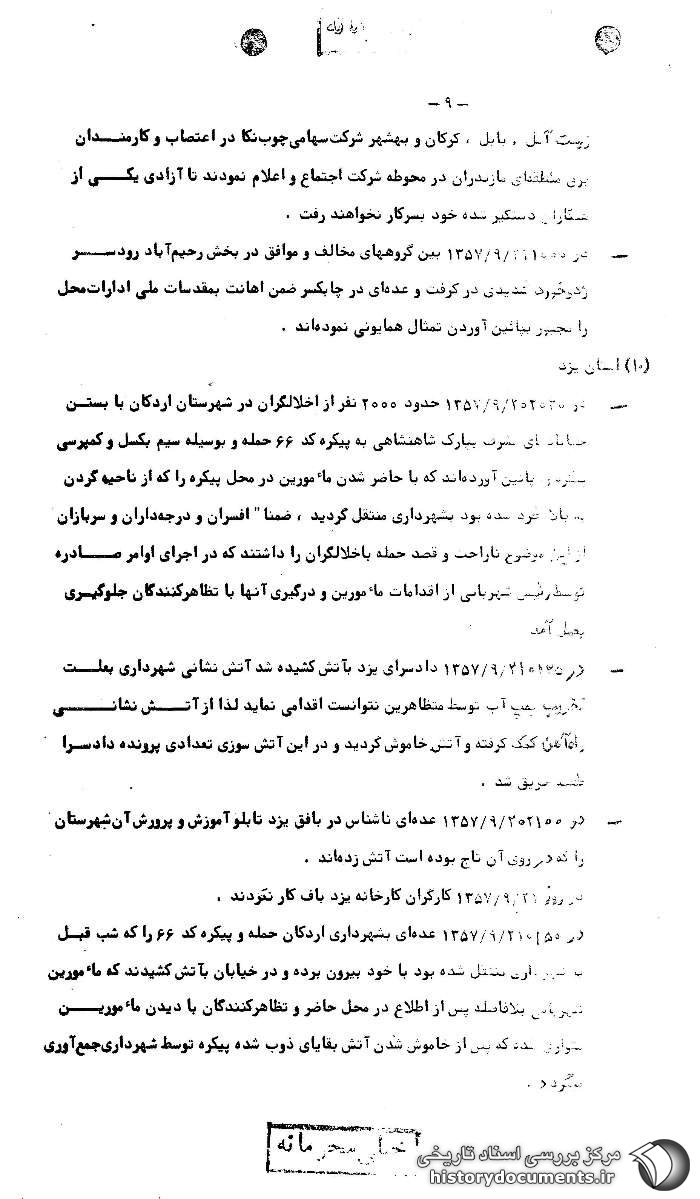 - ۹ -
زیست آمل , بابل ، کرکان و بهشهر شرکت‌سهامی‌چوب‌نکا در اعتصاب و کارمندان
برق منطقه‌ای مازندران در محوطه شرکت اجتماع و اعلام نمودند تا آزادی یکی از
همکاران دستگیر شده خود بسرکار نخواهند رفت .
— در ۱۳۵۷/۹/ بین گروههای مخالف و موافق در بخش رحیم‌آباد رودسر
زدوخورد شدیدی در گرفت و عده‌ای در چابکسر ضمن اهانت بمقدسات ملی ادارات‌محل
را مجبور بپائین آوردن تمثال همایونی نموده‌اند .
(۱۰) استان یزد
— در ۱۳۵۷/۹/۲۰۲۰۳۰ حدود ۲۰۰۰ نفر از اخلالگران در شهرستان اردکان با بستن
خیابانهای مبارک شاهنشاهی به پیکره کد ۶۶ حمله و بوسیله سیم بکسل و کمپرسی
پائین آورده‌اند که با حاضر شدن مأمورین در محل پیکره را که از ناحیه گردن
به بالا خرد شده بود بشهرداری منتقل گردید ، ضمنا" افسران و درجه‌داران و سربازان
از این موضوع ناراحت و قصد حمله باخلالگران را داشتند که در اجرای اوامر صادره
توسط رئیس شهربانی از اقدامات مأمورین و درگیری آنها با تظاهرکنندگان جلوگیری
بعمل آمد
— در ۱۳۵۷/۹/۲۱۰۱۳۵ دادسرای یزد بآتش کشیده شد آتش نشانی شهرداری بعلت
تخریب پمپ آب توسط متظاهرین نتوانست اقدامی نماید لذا از آتش نشانی
راه‌آهن کمک گرفته و آتش خاموش گردید و در این آتش سوزی تعدادی پرونده دادسرا
طعمه حریق شد .
— در ۱۳۵۷/۹/۲۰۲۱۰۰ عده‌ای ناشناس در بافق یزد تابلو آموزش و پرورش آن‌شهرستان
را که در روی آن تاج بوده است آتش زده‌اند .
در روز ۱۳۵۷/۹/۲۱ کارگران کارخانه یزد باف کار نکردند .
در ۱۳۵۷/۹/۲۱۰۱۵۰ عده‌ای بشهرداری اردکان حمله و پیکره کد ۶۶ را که شب قبل
به شهرداری منتقل شده بود با خود بیرون برده و در خیابان بآتش کشیدند که مأمورین
شهربانی بلافاصله پس از اطلاع در محل حاضر و تظاهرکنندگان با دیدن مأمورین
متواری شده که پس از خاموش شدن آتش بقایای ذوب شده پیکره توسط شهرداری‌جمع‌آوری
میگردد .
خیلی محرمانه
مرکز بررسی اسناد تاریخی
historydocuments.ir